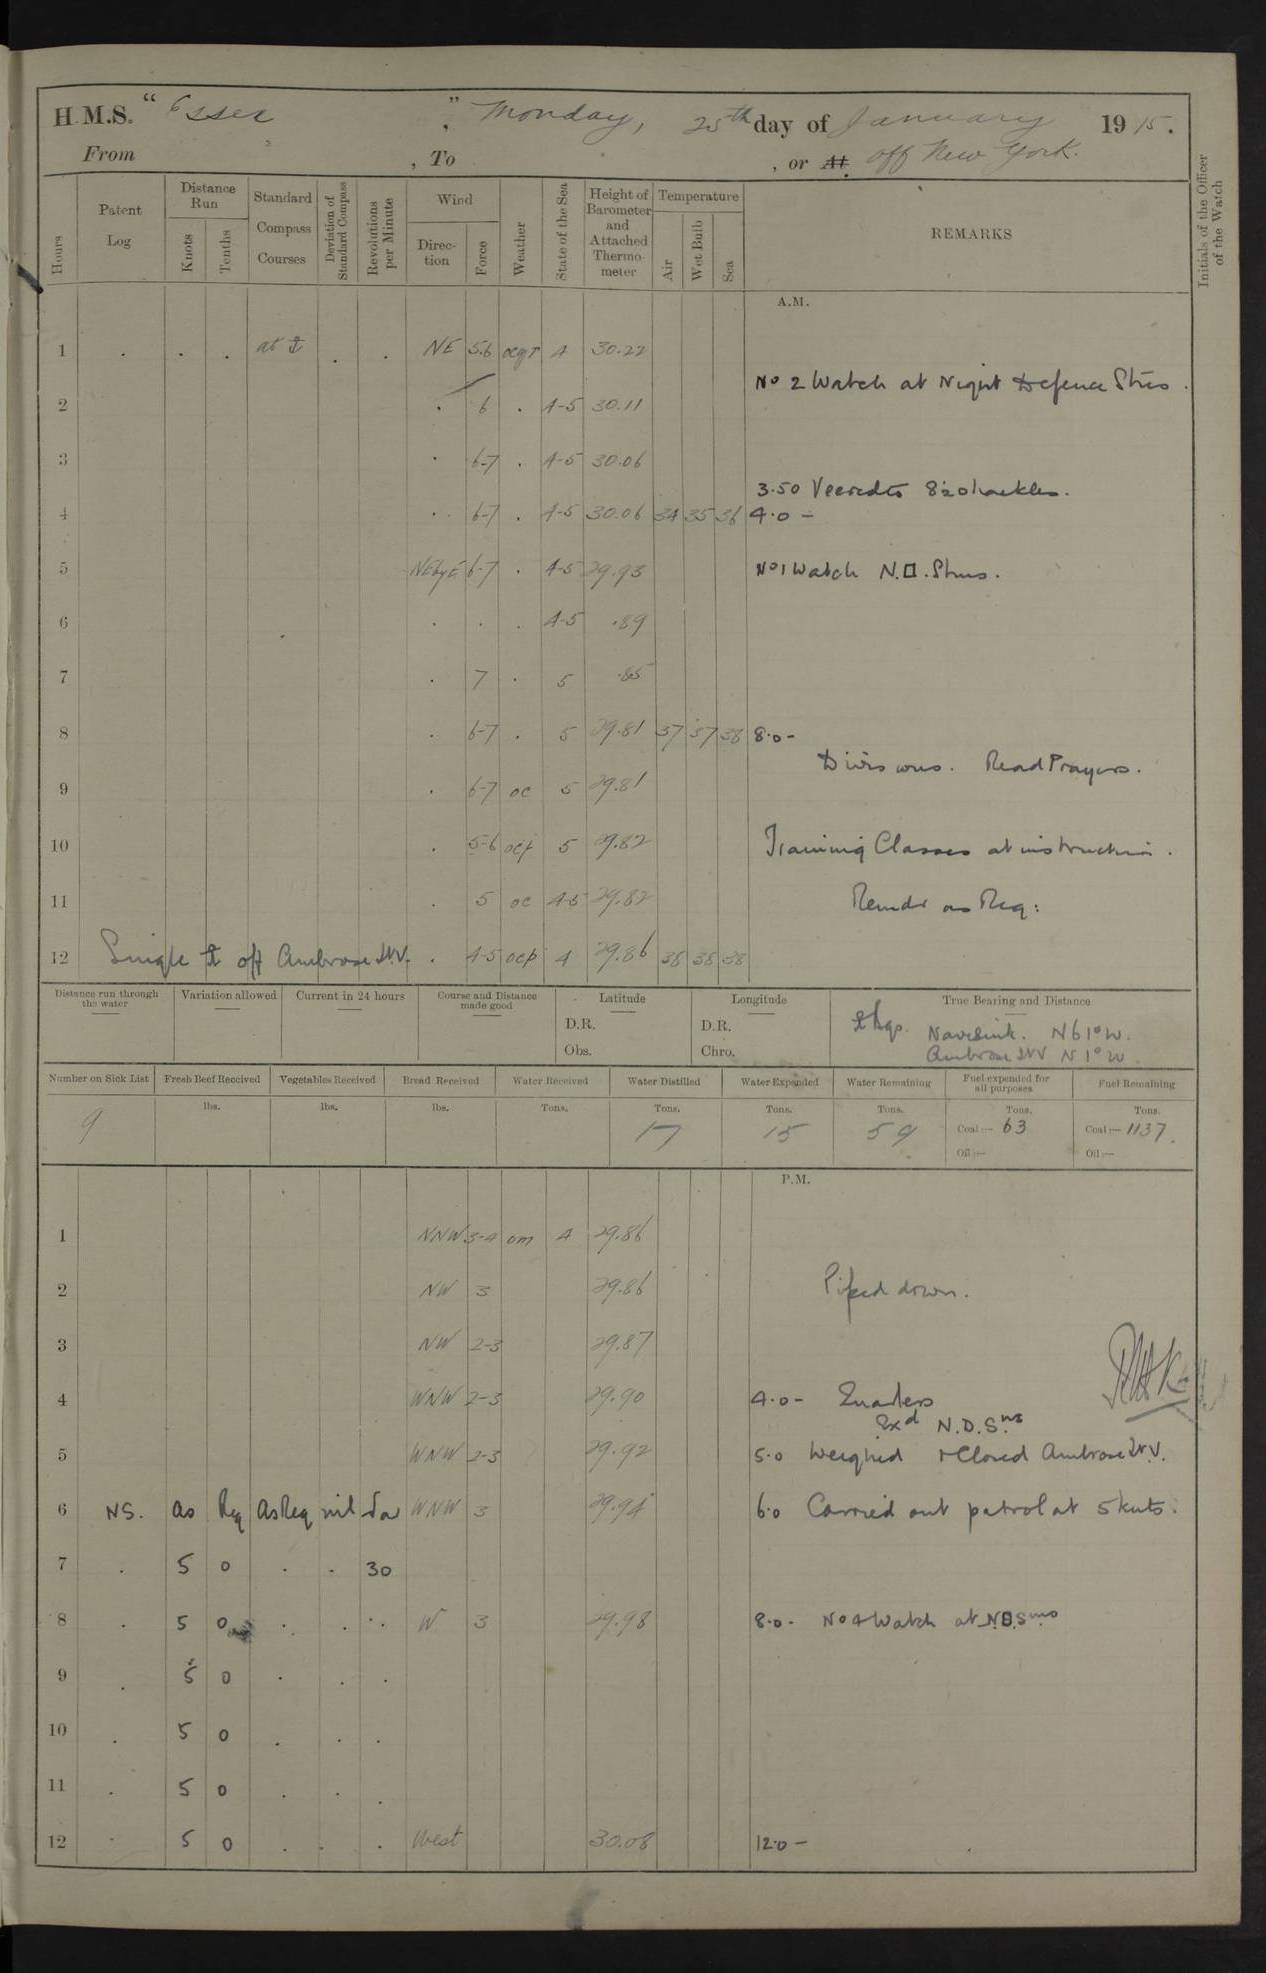 H.M.S. " Essex ", Monday, 25th day of January 1915.
From , To , or At off New York.
Hours
Patent Log
Distance Run
Knots
Tenths
Standard Compass Courses
Deviation of Standard Compass
Revolutions per Minute
Wind
Direction
Force
Weather
State of the Sea
Height of Barometer and Attached Thermometer
Temperature
Air
Wet Bulb
Sea
REMARKS
Initials of the Officer of the Watch
A.M.
1 . . . at ⚓ . . NE 5.6 ocqr 4 30.22
No 2 Watch at Night Defence Stns.
2 . 6 . 4-5 30.11
3 . 6-7 . 4-5 30.06
3.50 Veered to 8 shackles.
4 . 6-7 . 4-5 30.06 34 35 36 4.0 -
5 NEbyE 6-7 . 4-5 29.93 No 1 Watch N.D. Stns.
6 . . . 4-5 .89
7 . 7 . 5 .85
8 . 6-7 . 5 29.81 37 37 38 8.0 -
Divisions. Read Prayers.
9 . 6-7 oc 5 29.81
10 . 5-6 ocp 5 29.82 Training Classes at instruction.
11 . 5 oc 4-5 29.82 Remdr as Req:
12 Single ⚓ off Ambrose L.V. . 4-5 ocp 4 29.86 38 38 38
Distance run through the water
Variation allowed
Current in 24 hours
Course and Distance made good
Latitude
D.R.
Obs.
Longitude
D.R.
Chro.
True Bearing and Distance
⚓ bgs. Navesink. N61°W.
Ambrose LV N1°W
Number on Sick List
Fresh Beef Received
Vegetables Received
Bread Received
Water Received
Water Distilled
Water Expended
Water Remaining
Fuel expended for all purposes
Fuel Remaining
9 lbs. lbs. lbs. Tons. Tons. 17 Tons. 15 Tons. 59 Tons. Coal:- 63 Oil:- Tons. Coal:- 1137. Oil:-
P.M.
1 NNW 3-4 om 4 29.86
2 NW 3 29.86 Piped down.
3 NW 2-3 29.87
4 WNW 2-3 29.90 4.0 - Quarters
Exd N.D.Sns
5 WNW 2-3 29.92 5.0 Weighed & Closed Ambrose L.V.
6 NS. as Req As Req nil Var WNW 3 29.94 6.0 Carried out patrol at 5 knts.
7 . 5 0 . . 30
8 . 5 0 . . . W 3 29.98 8.0 - No 4 Watch at N.D.Stns
9 . 5 0 . . .
10 . 5 0 . . .
11 . 5 0 . . .
12 . 5 0 . . . West 30.08 12.0 -